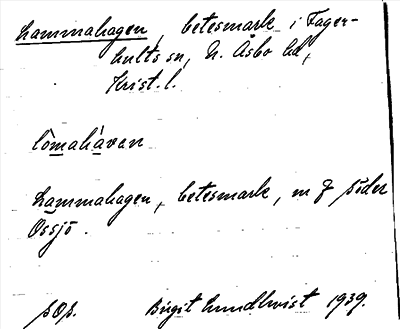 Lammahagen, betesmark i Fager-
hults sn, N. Åsbo hd,
Krist. l.
lômahàven
Lammahagen, betesmark, n f Söder
Ossjö.
SOS. Birgit Lundkvist 1939.